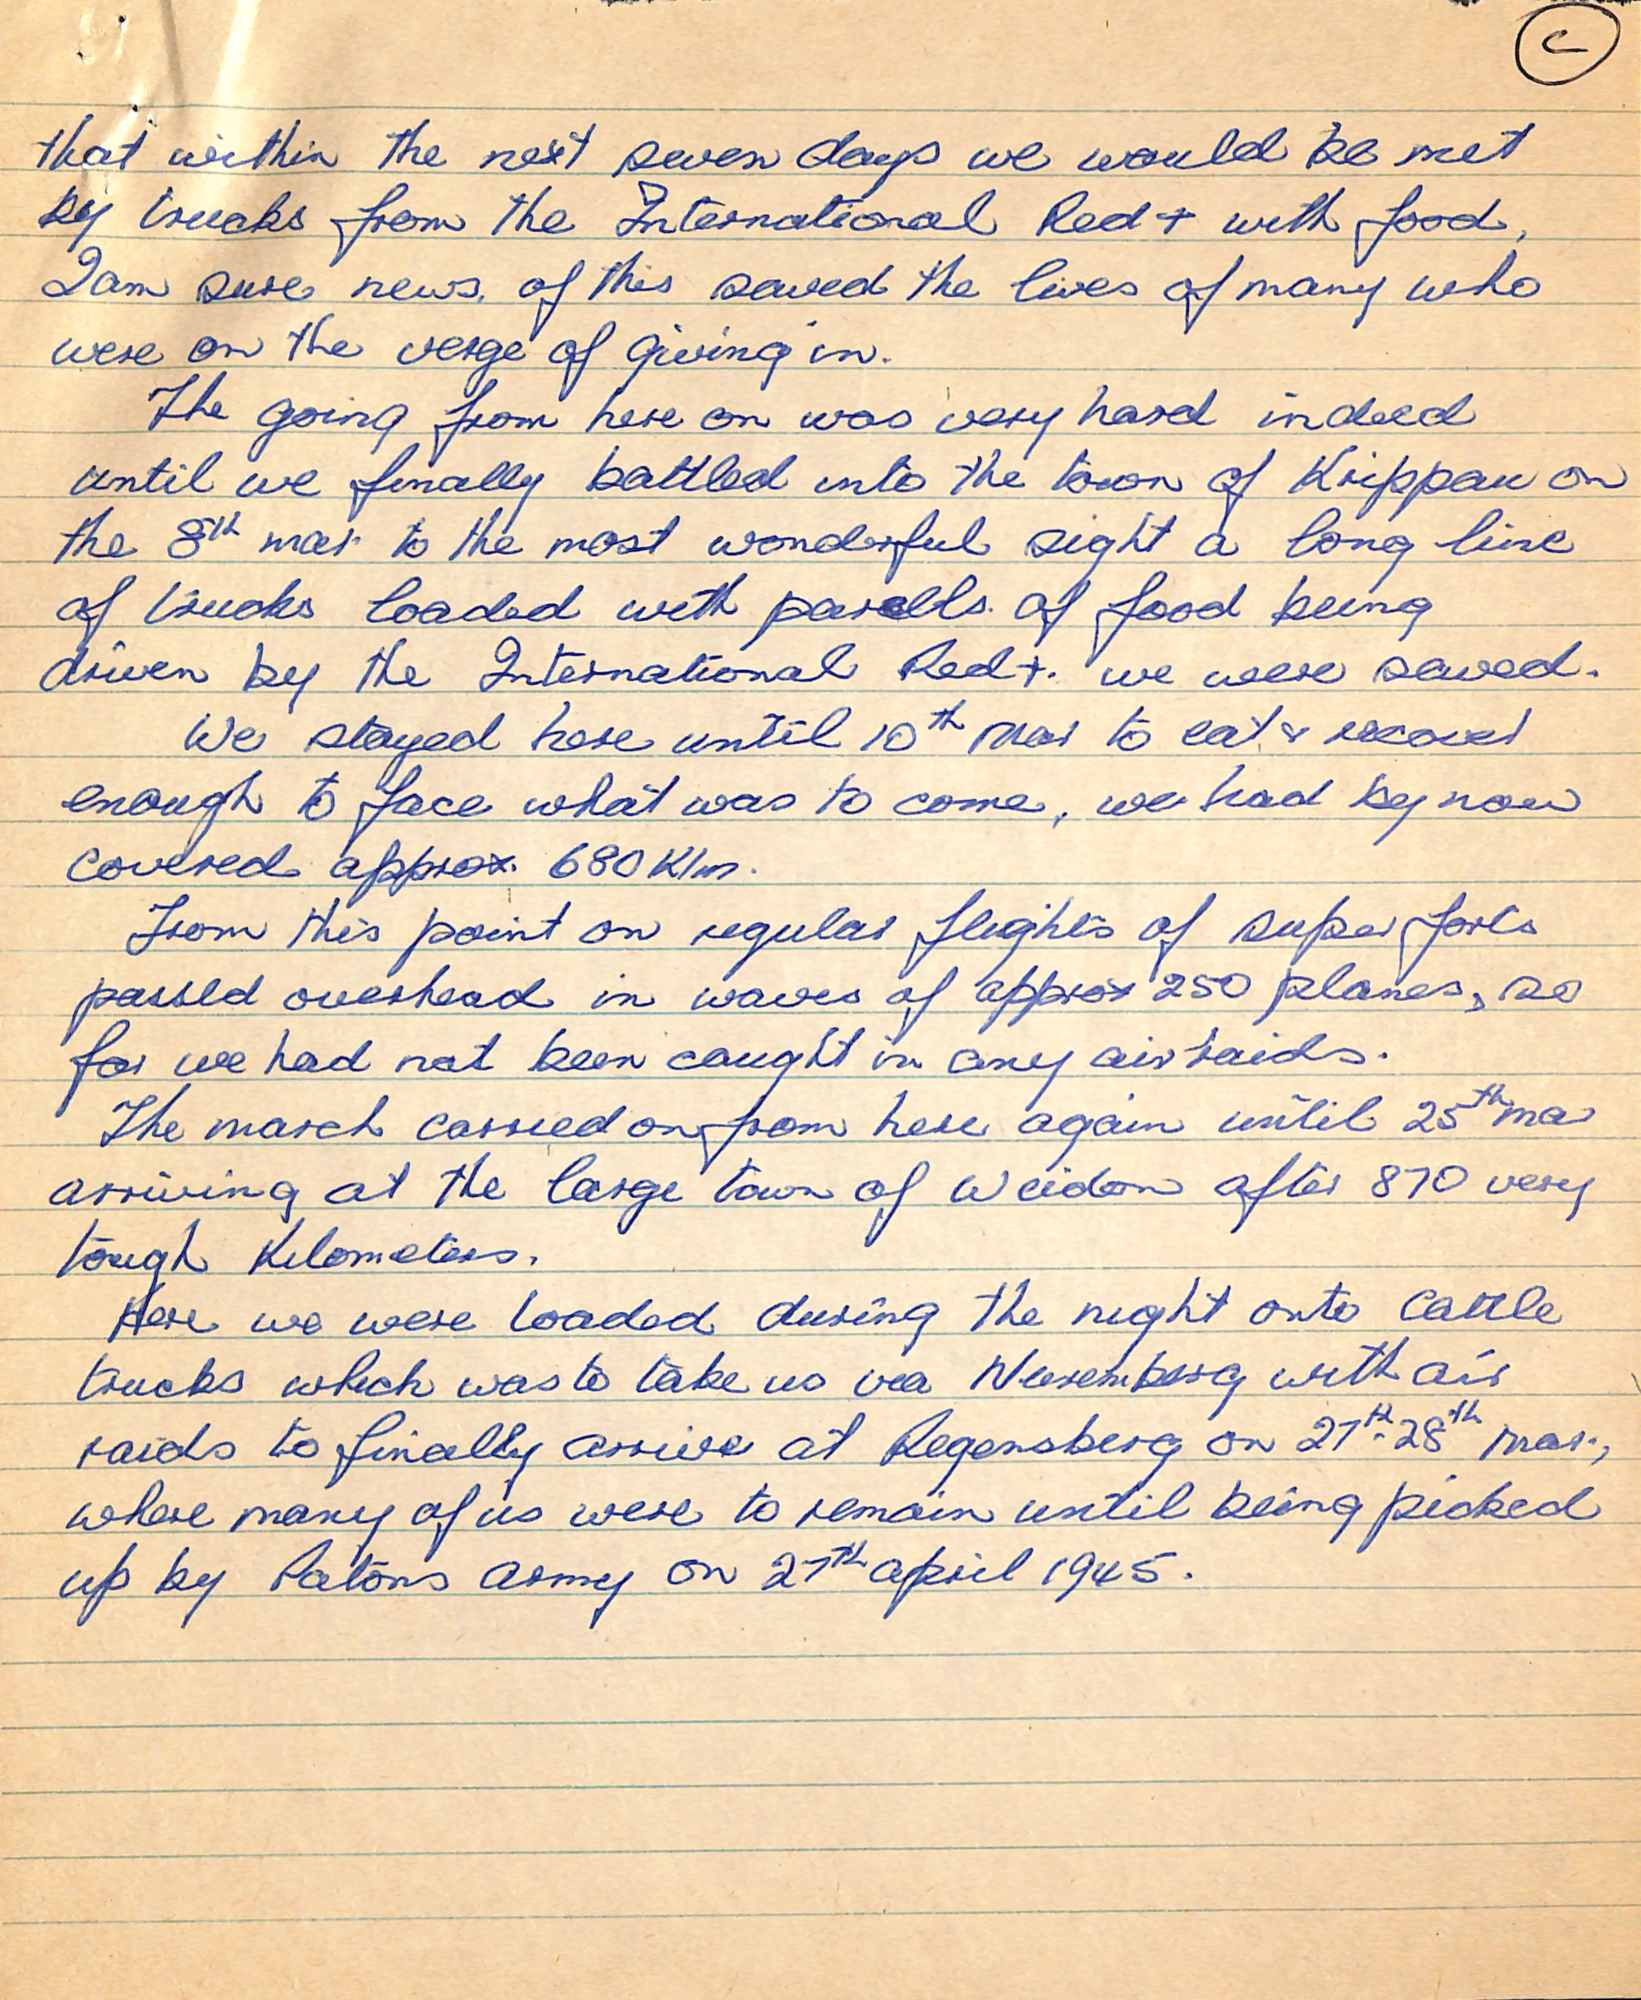 C
that within the next seven days we would be met
by trucks from the International Red + with food,
I am sure news, of this saved the lives of many who
were on the verge of giving in.
The going from here on was very hard indeed
until we finally battled into the town of Krippau on
the 8th mar. to the most wonderful sight a long line
of trucks loaded with parcells of food being
driven by the International Red +. we were saved.
We stayed here until 10th Mar to eat & recover
enough to face what was to come, we had by now
covered approx. 680 Klm.
From this point on regular flights of super forts
passed overhead in waves of approx 250 planes, so
far we had not been caught in any air raids.
The march carried on from here again until 25th ma
arriving at the large town of Weidon after 870 very
tough Kilometers.
Here we were loaded during the night onto Cattle
trucks which was to take us via Nuremberg with air
raids to finally arrive at Regensberg on 27th-28th Mar.,
where many of us were to remain until being picked
up by Patons army on 27th april 1945.